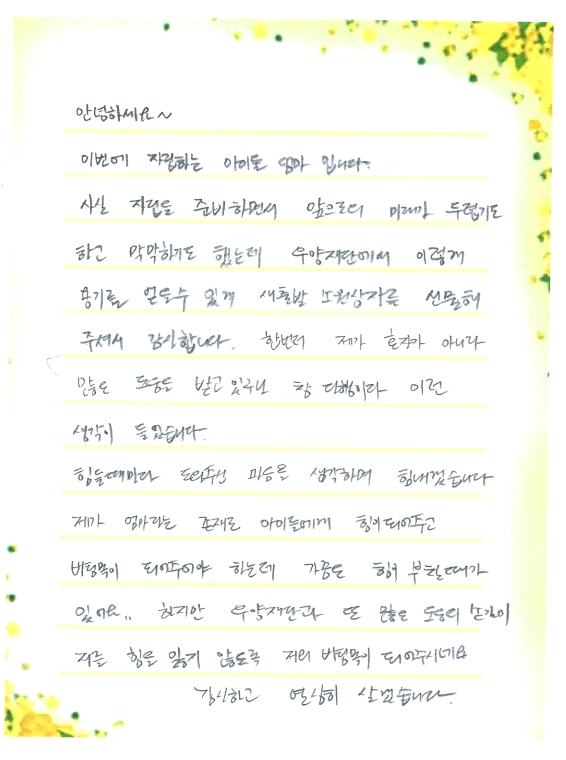 안녕하세요~
이번에 자립하는 아이둘 엄마 입니다.
사실 자립을 준비하면서 앞으로의 미래가 두렵기도
하고 막막하기도 했는데 우양재단에서 이렇게
용기를 얻을수 있게 새출발 소원상자를 선물해
주셔서 감사합니다. 한번더 제가 혼자가 아니라
많은 도움을 받고 있구나 참 다행이다 이런
생각이 들었습니다.
힘들때마다 도와주신 마음을 생각하며 힘내겠습니다
제가 엄마라는 존재로 아이들에게 힘이되어주고
버팀목이 되어주어야 하는데 가끔은 힘이 부칠때가
있어요.. 하지만 우양재단과 또 많은 도움의 손길이
저를 힘을 잃지 않도록 저의 버팀목이 되어주시네요
감사하고 열심히 살겠습니다.